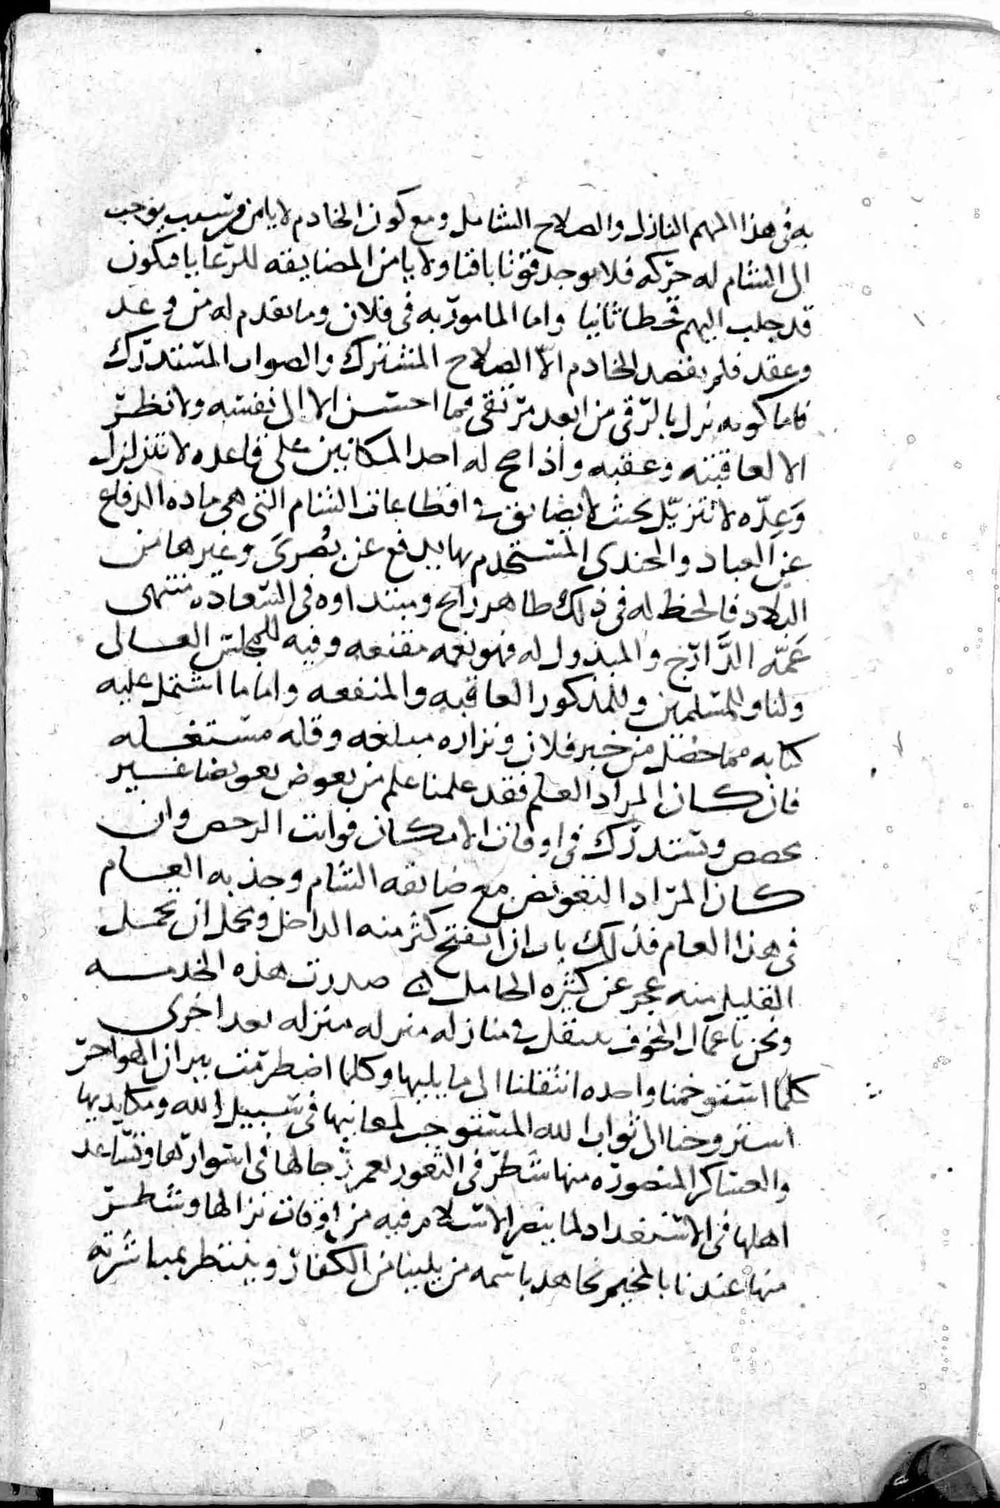 به فى هذا المهم النازل والصلاح الشامل ومع كون الخادم لا يامن من سبب يوجب
الى الشام له حركه فلا يوجد قوتا باقيا ولا يامن المضايقه للرعايا فيكون
قد جلب اليهم قحطا ثانيا واما المامور به فى فلان وما تقدم له من وعد
وعقد فلم يقصد الخادم الا الصلاح المشترك والصواب المستدرك
فاما كونه نزل بالرقى من ابعد مرتقى فما احسن الا الى نفسه ولا نظر
الا لعاقبته وعقبه واذا صح له احد المكانين على قاعده لا تتزلزل
وعده لا تتزيل بحيث لا يضايق فى اقطاعات الشام التى هى ماده الدفاع
عن العباد والجندى المستخدم بها يدفع عن بصرى وغيرها من
البلاد فالحظ له فى ذلك ظاهر رابح ومبتداوه فى السعاده منتهى
عمه الدارج والمبذول له فهو نعمه مقنعه وفيه للمجلس العالى
ولنا وللمسلمين وللمذكور العاقبه والمنفعه واما ما اشتمل عليه
كتابه مما حصل من خبر فلان ونزاره مبلغه وقله مستغله
فان كان المراد العلم فقد علمنا علم من يعوض تعويضا غير
محصص ويستدرك فى اوقات الامكان فوايت الرخص وان
كان المراد التعويض مع ضايقه الشام وجذبه العام
فى هذا العام فذلك باب اذا انفتح كثر منه الداخل ونحل ان تحمل
القليل منه عجز عن كثيره الحامل صدرت هذه الخدمه
ونحن باعمال الخوف ننتقل فى منازله منزله بعد اخرى
كلما استوخمنا واحده انتقلنا الى ما يليها وكلما اضطرمت نيران الهواجر
استروحنا الى ثواب الله المستوجب لمعانيها فى سبيل الله ومكابديها
والعساكر المنصوره منها شطر فى الثغور تعمر رجالها فى اسوارها وتساعد
اهلها فى الاستعداد لما ينصر الاسلام فيه من اوقات نزالها وشطر
منها عندنا بالمخيم نجاهد باسمه من يلينا من الكفار وينتظر بمباشرته